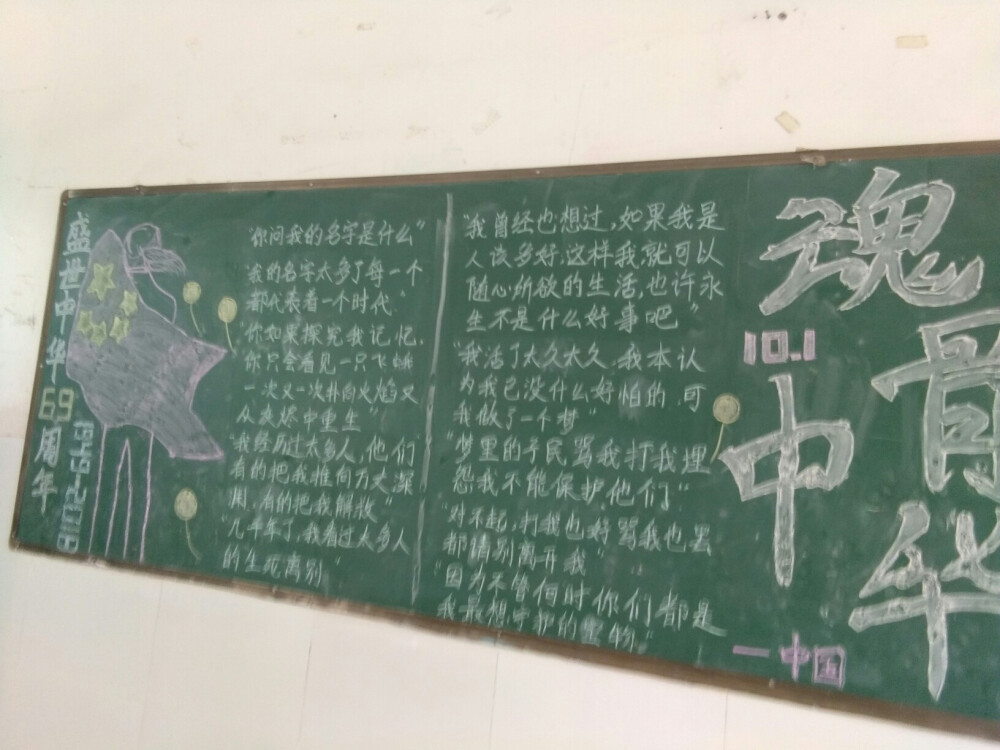 盛世中华69周年
1949-2018
"你问我的名字是什么"
"我的名字太多了每一个
都代表着一个时代."
"你如果探究我记忆,
你只会看见一只飞蛾
一次又一次扑向火焰又
从灰烬中重生"
"我经历过太多人,他们
有的把我推向万丈深
渊,有的把我解救"
"几千年了,我看过太多人
的生死离别"
"我曾经也想过,如果我是
人该多好.这样我就可以
随心所欲的生活,也许永
生不是什么好事吧"
"我活了太久太久.我本认
为我已没什么好怕的.可
我做了一个梦"
"梦里的子民,骂我打我埋
怨我不能保护他们"
"对不起,打我也好骂我也罢
都请别离开我"
"因为不管何时你们都是
我最想守护的 物。"
10.1
一中国
魂
骨
中华